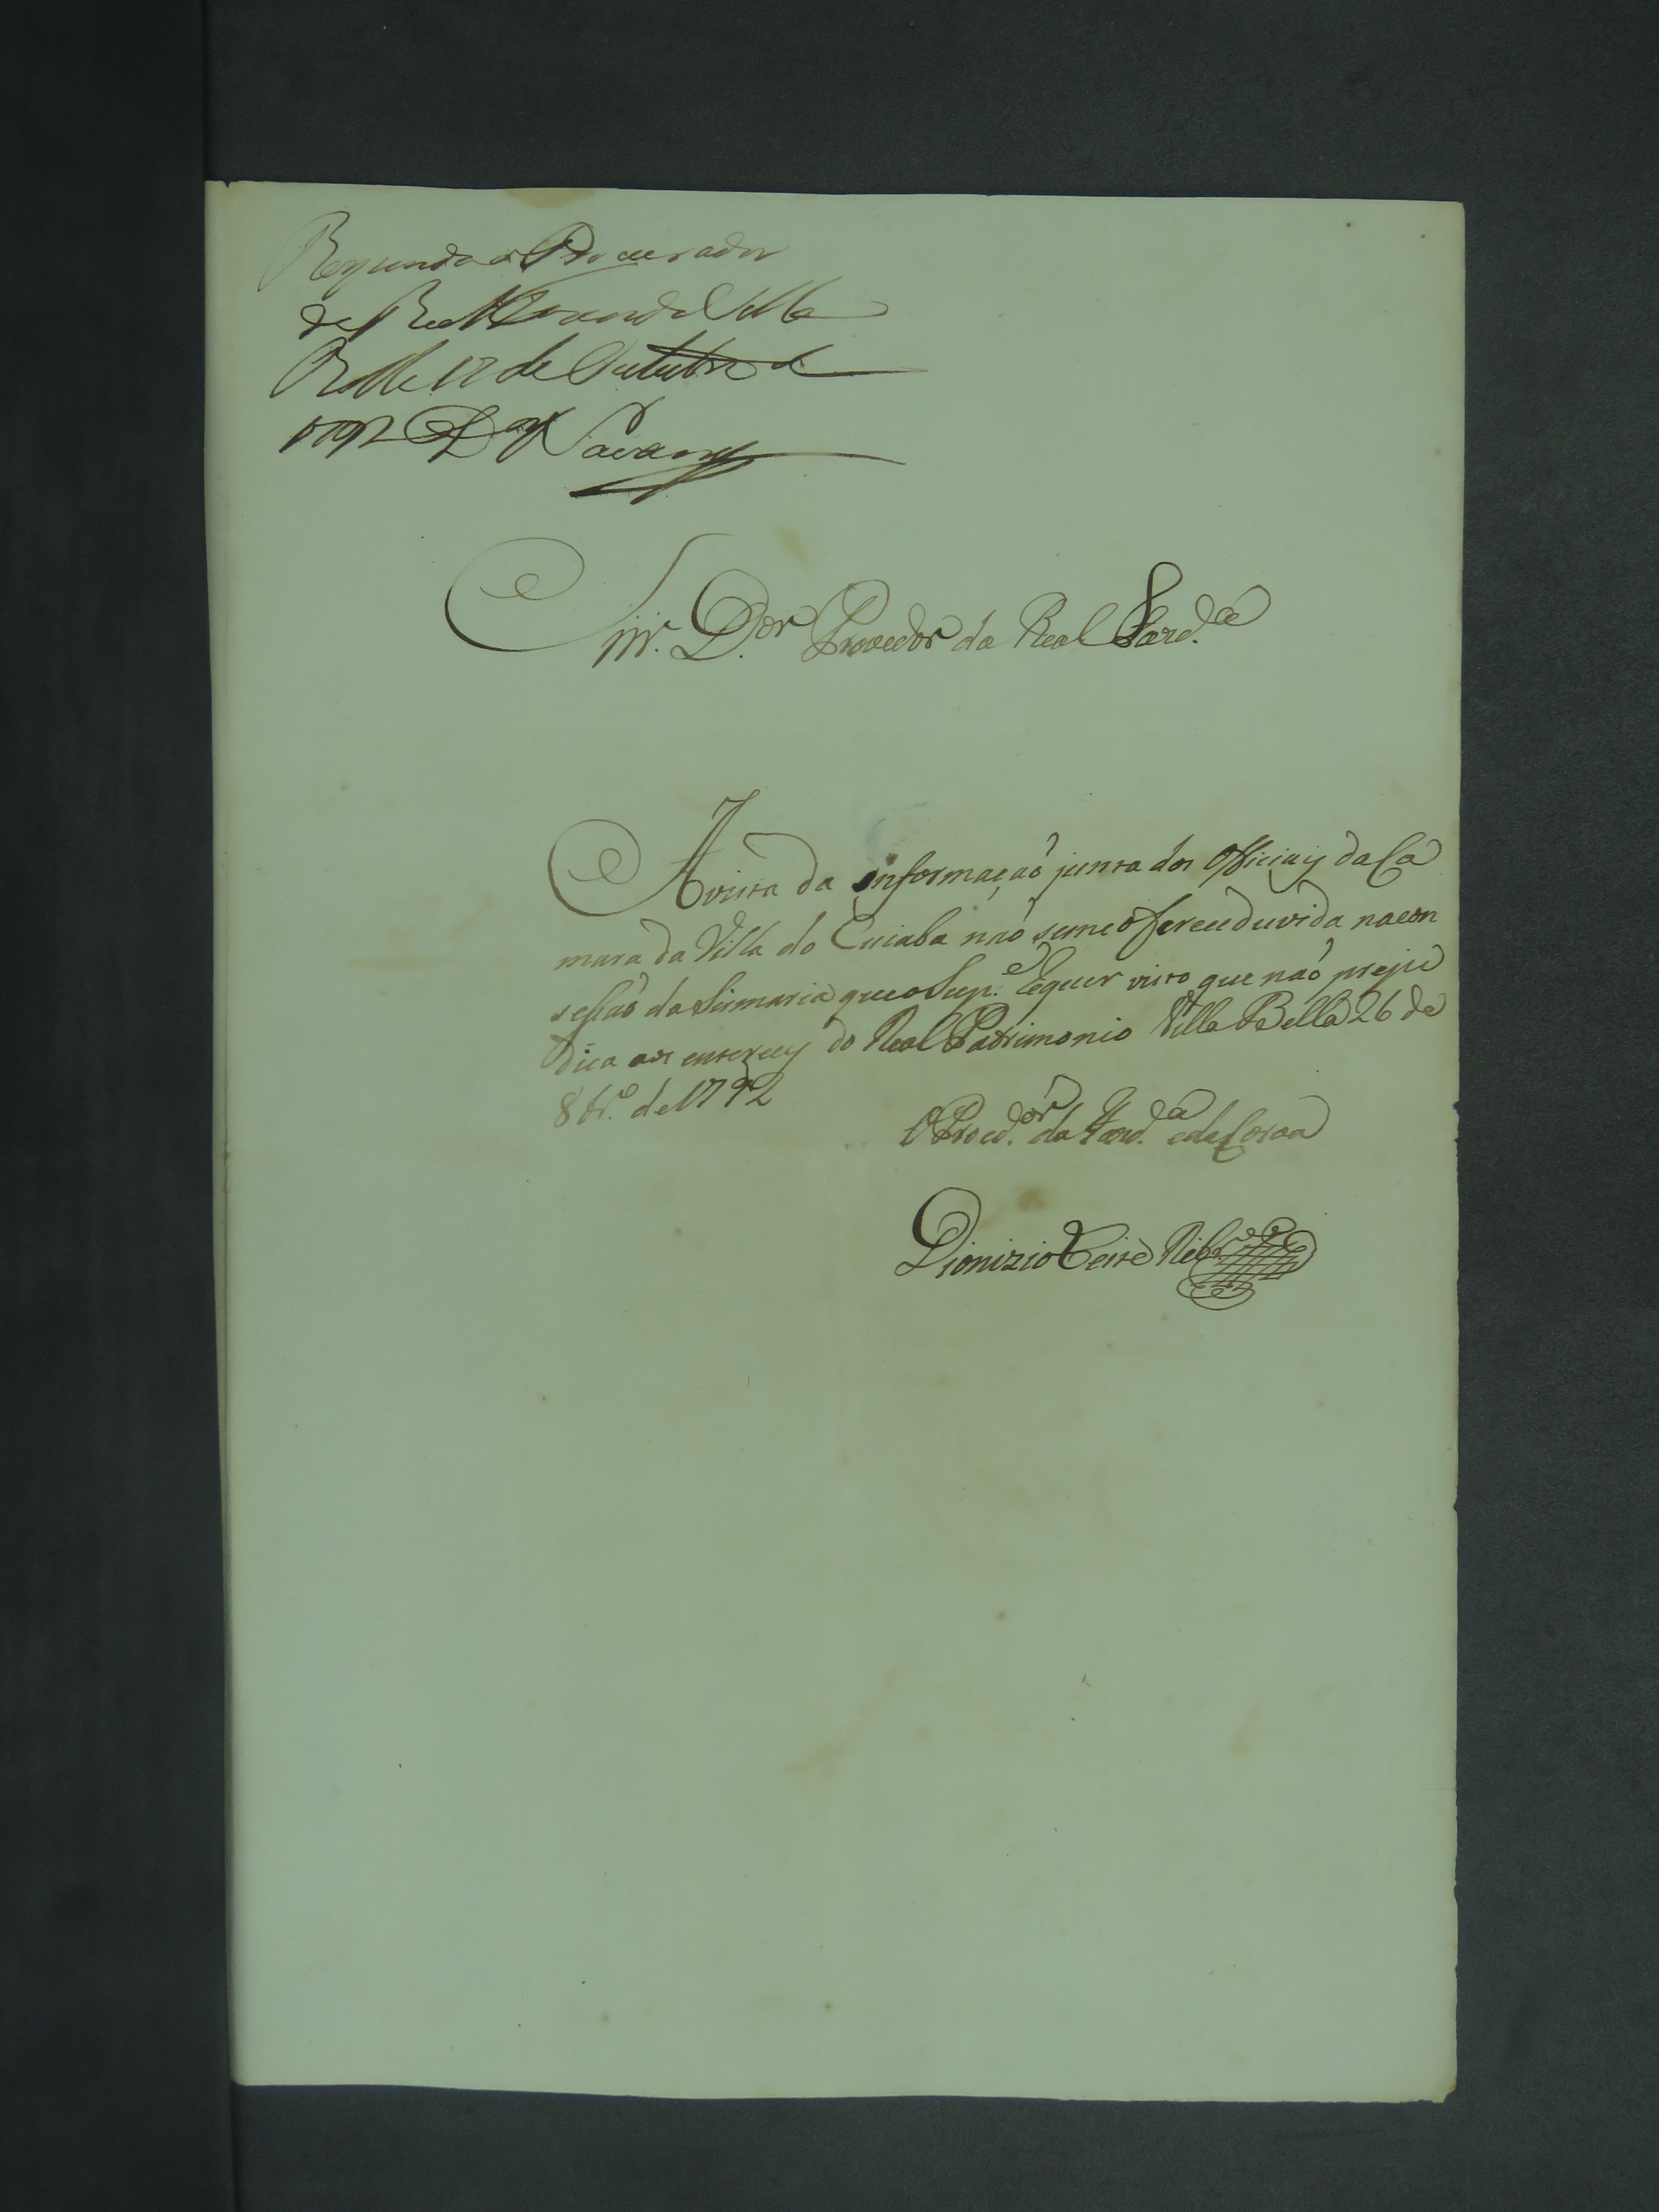 Responda o Procurador
da Real Fazenda Villa
Bella 17 de Outubro de
1792
Snr. D.or Provedor da Real Fazd.a
A vista da informaçaõ junta dos Officiaiz da Ca
mara da Villa do Cuiaba naõ seme oferece duvida nacon
sessaõ da Sismaria que o Sup.e Requer visto que naõ preju
dica aos enterecez do Real Patrimonio Villa Bella 26 de
8br.o de 1792
O Procd.or da Fazd.a e da Coroa
Dionizio Ribr.o